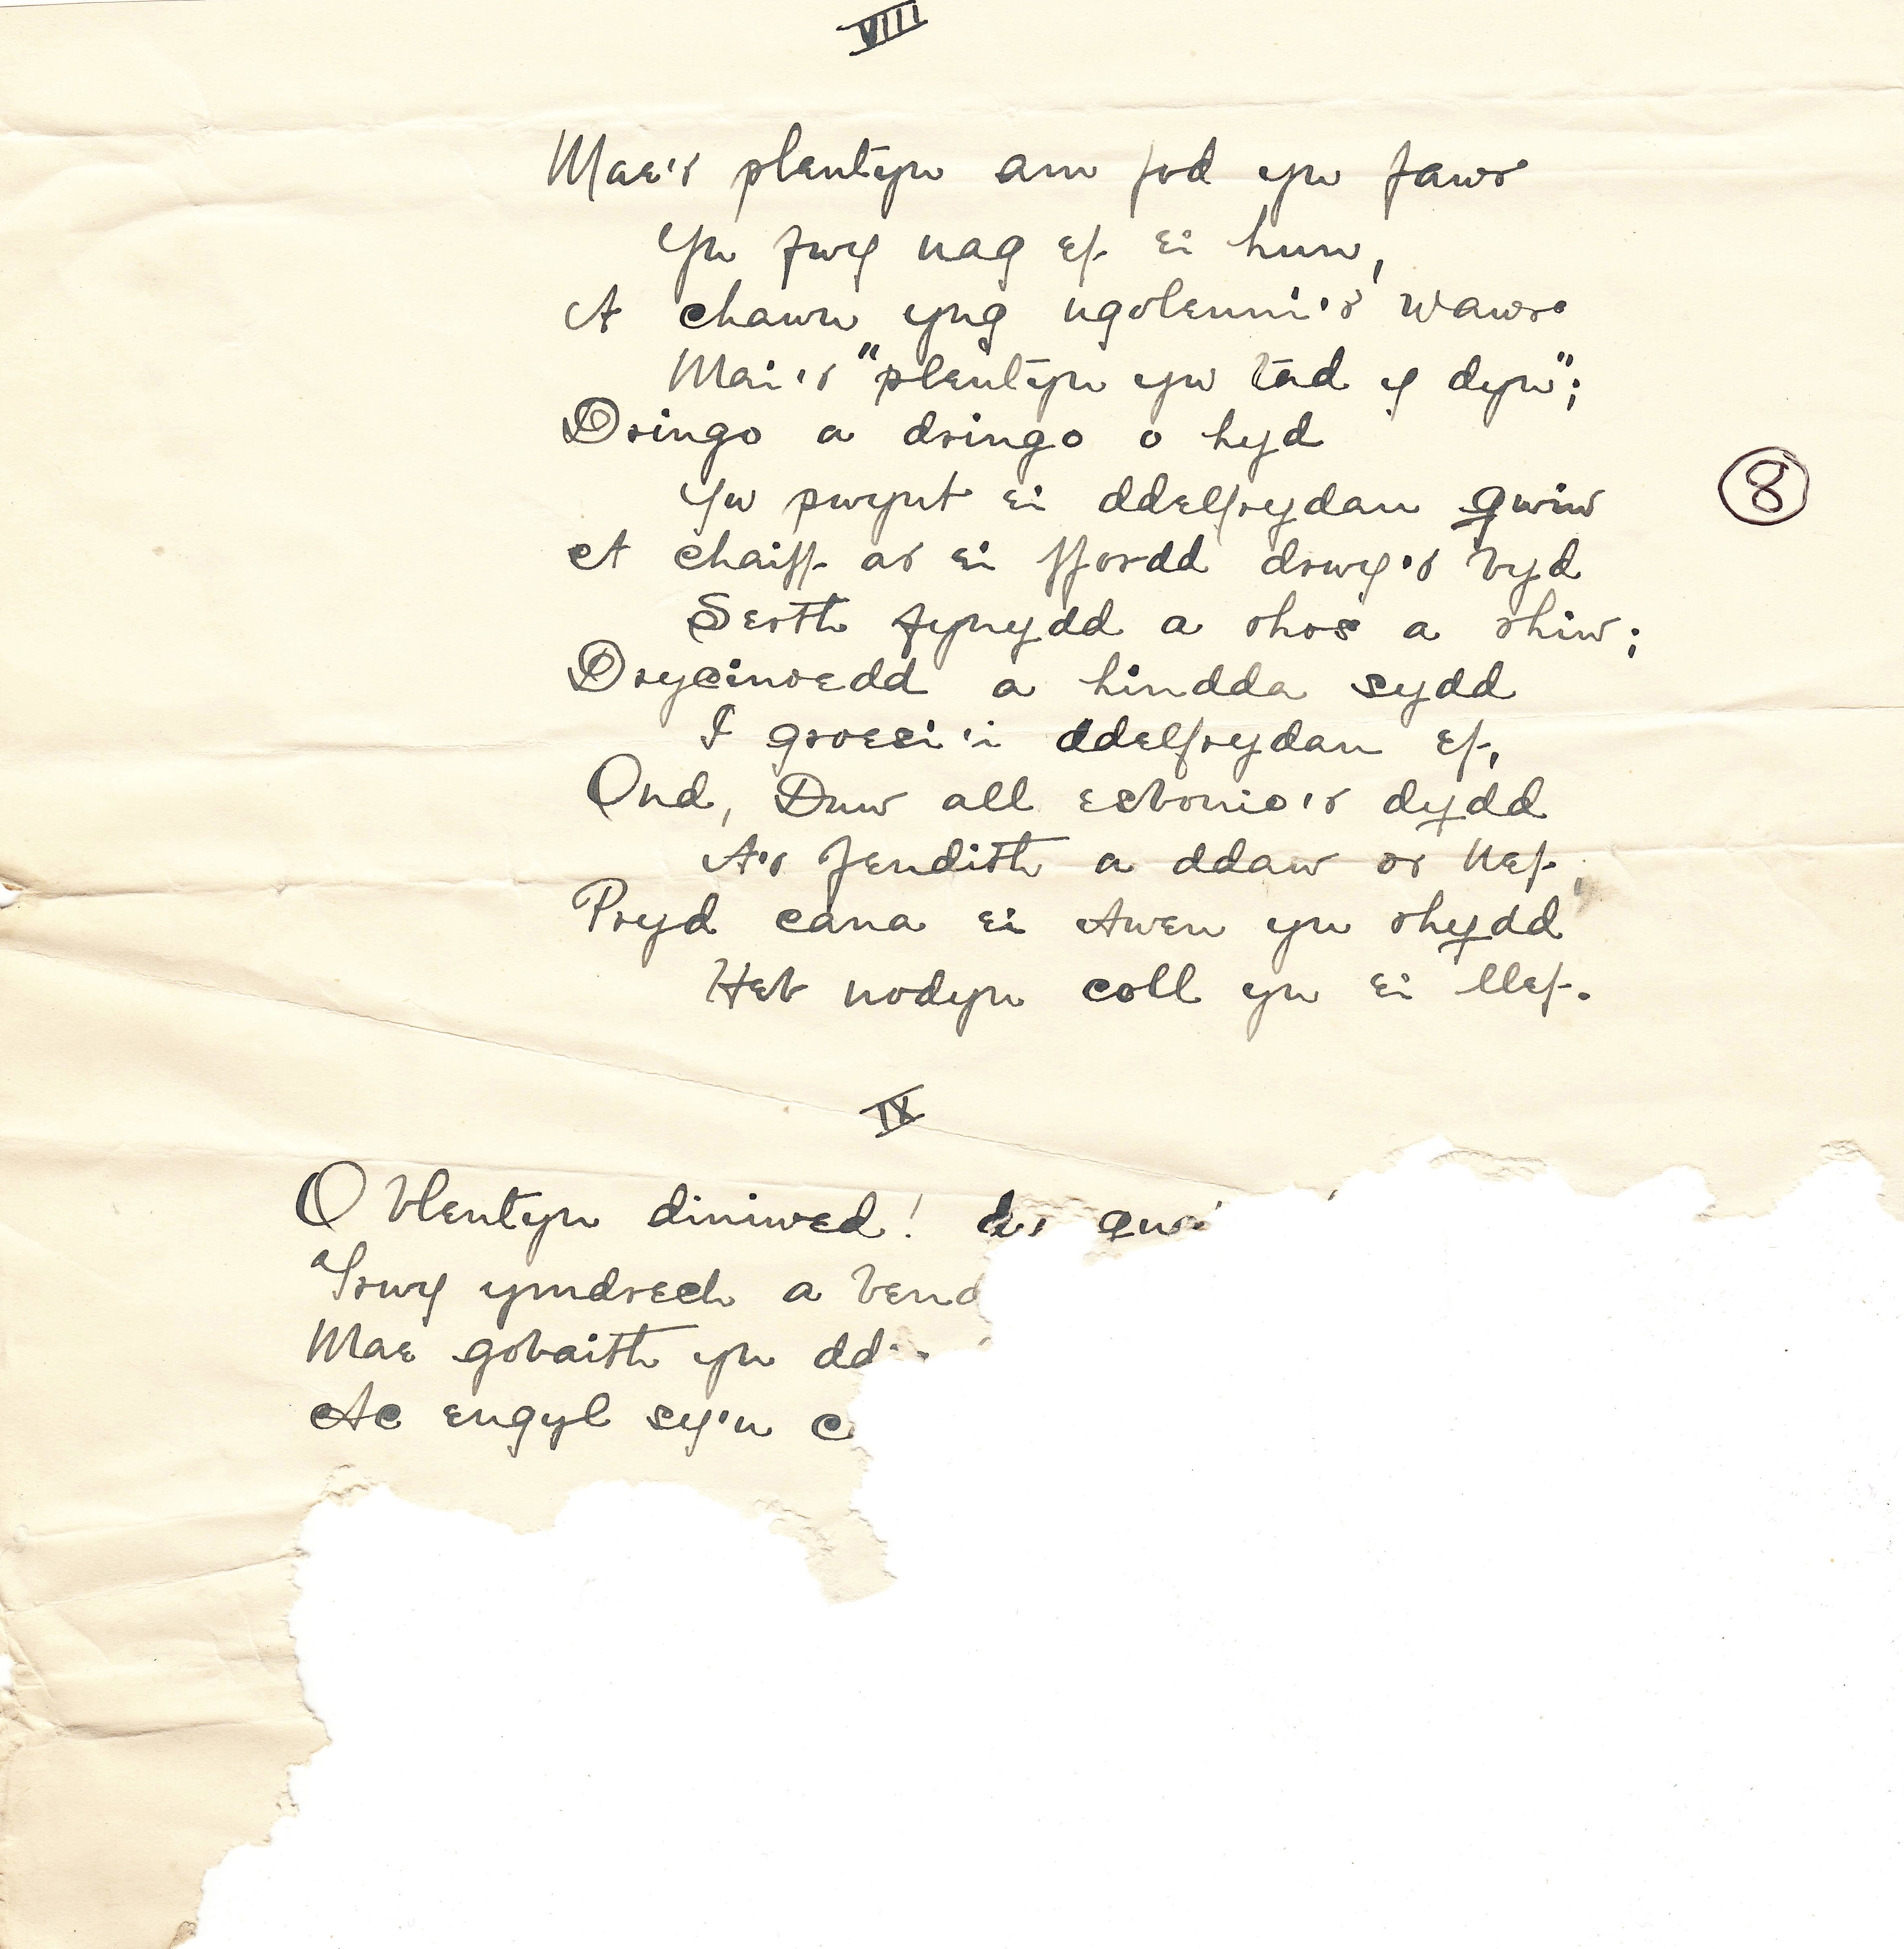 VIII
Mae'r plentyn am fod yn fawr
Yn fwy nag ef ei hun,
A chawn yng ngolenni'r wawr
Mai'r "plentyn yw tad y dyn";
Dringo a dringo o hyd
Yw pwynt ei ddelfrydau gwiw
A chaiff ar ei ffordd drwy'r byd
Serth fynydd a rhos a rhiw;
8
Drycinoedd a hindda sydd
I groesi'i ddelfrydau ef,
Ond, Duw all estonio'r dydd
A'r fendith a ddaw or Nef,
Pryd cana ei Awen yn rhydd
Heb nodyn coll yn ei llef.
IX
O blentyn diniwed!
Trwy ymdrech a
Mae gobaith yn
Ac engyl sy'n